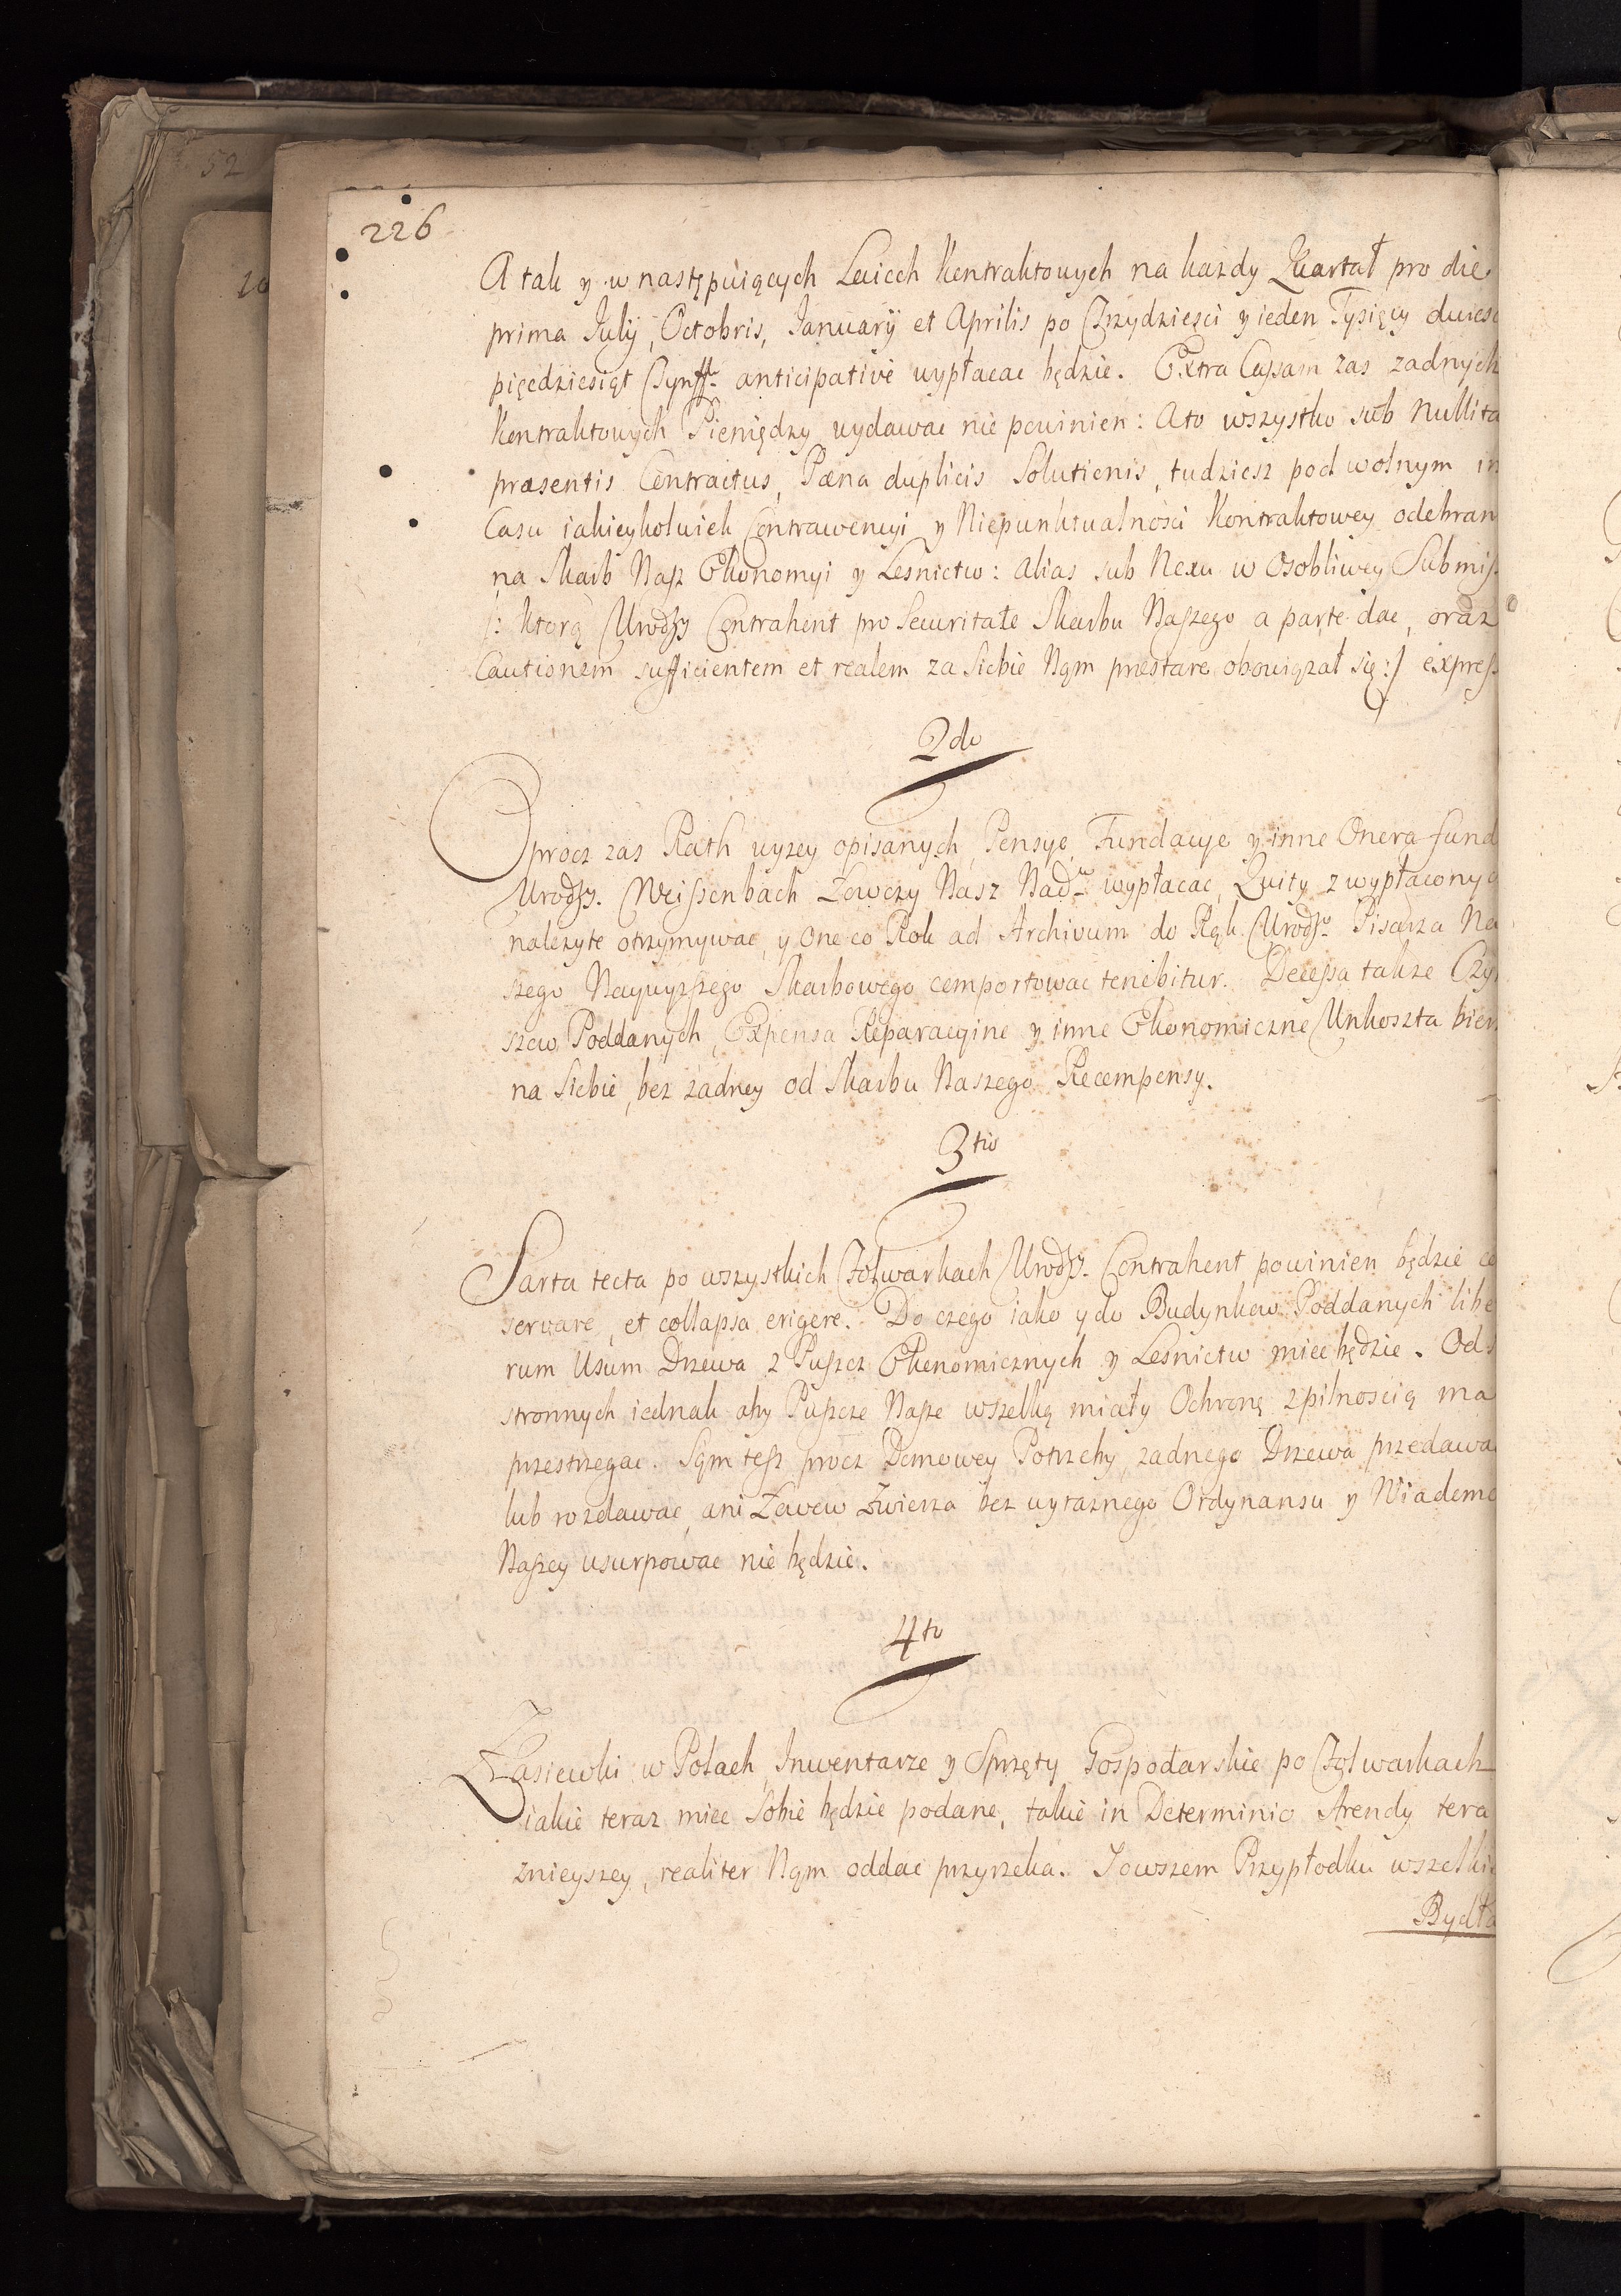 52
226
A tak y w następuiących Leciech Kontraktowych na kazdy Quartał pro die
prima July, Octobris, January et Aprilis po Trzydziesci y ieden Tysięcy dwiesc
pięcdziesiąt Tynff: anticipative wypłacac będzie. Extra Cassam zas zadnych
Kontraktowych Pieniędzy wydawac nie powinien: A to wszystko sub Nullita
præsentis Contractus, Pœna duplicis Solutionis, tudziesz pod wolnym in
Casu iakieykolwiek Contrawencyi y Niepunktualnosci Kontraktowey odebran
na Skarb Nasz Ekonomyi y Lesnictw: alias sub Nexu w Osobliwey Submiss
/: ktorą Urodzy Contrahent pro Securitate Skarbu Naszego a parte dac, oraz
Cautionem sufficientem et realem za Siebie Nąm præstare obowiązał się :/ express
2do
Oprocz zas Rath wyzey opisanych, Pensye, Fundacye y inne Onera fund
Urodzy. Weissenbach Łowczy Nasz Nadw. wypłacac, Quity z wypłaconyc
nalezyte otrzymywac, y One co Rok ad Archivum do Rąk Urodzo. Pisarza Na
szego Naywyzszego Skarbowego comportowac tenebitur. Decessa takze Czyn
szow Poddanych, Expensa Reparacyine y inne Ekonomiczne Unkoszta bierz
na Siebie, bez zadney od Skarbu Naszego Recompensy.
3tio
Sarta tecta po wszystkich Folwarkach Urodzy. Contrahent powinien będzie co
servare, et collapsa erigere. Do czego iako y do Budynkow Poddanych libe
rum Usum Drzewa z Puszcz Ekonomicznych y Lesnictw miec będzie. Od s
stronnych iednak aby Puszcze Nasze wszelką miały Ochronę z pilnoscią ma
przestrzegac. Sąm tesz procz Domowey Potrzeby, zadnego Drzewa przedawa
lub rozdawac, ani Łowow Zwierza bez wyraznego Ordynansu y Wiadomo
Naszey usurpowac nie będzie.
4to
Zasiewki w Polach, Inwentarze y Sprzęty Gospodarskie po Folwarkach
iakie teraz miec Sobie będzie podane, takie in Determinio Arendy tera
znieyszey, realiter Nąm oddac przyrzeka. Iowszem Przypłodku wszelkie
Bydła